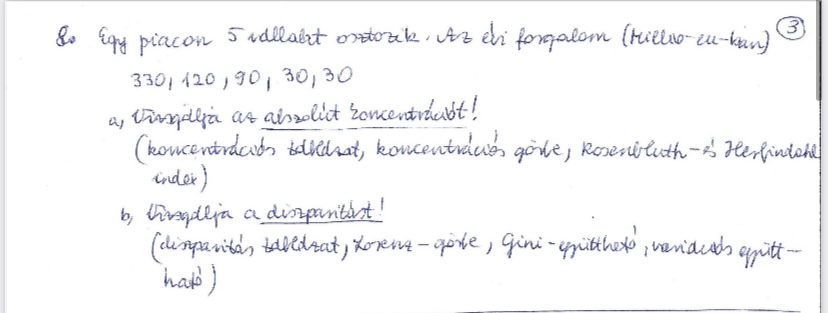 8. Egy piacon 5 vállalat osztozik. Az évi forgalom (millió eu-ban) 3
330, 120, 90, 30, 30
a, Vizsgálja az abszolút koncentrációt!
(koncentrációs táblázat, koncentrációs görbe, Rosenbluth- és Herfindahl
index)
b, Vizsgálja a diszparitást!
(diszparitás táblázat, Lorenz-görbe, Gini-együttható, variációs együtt-
ható)